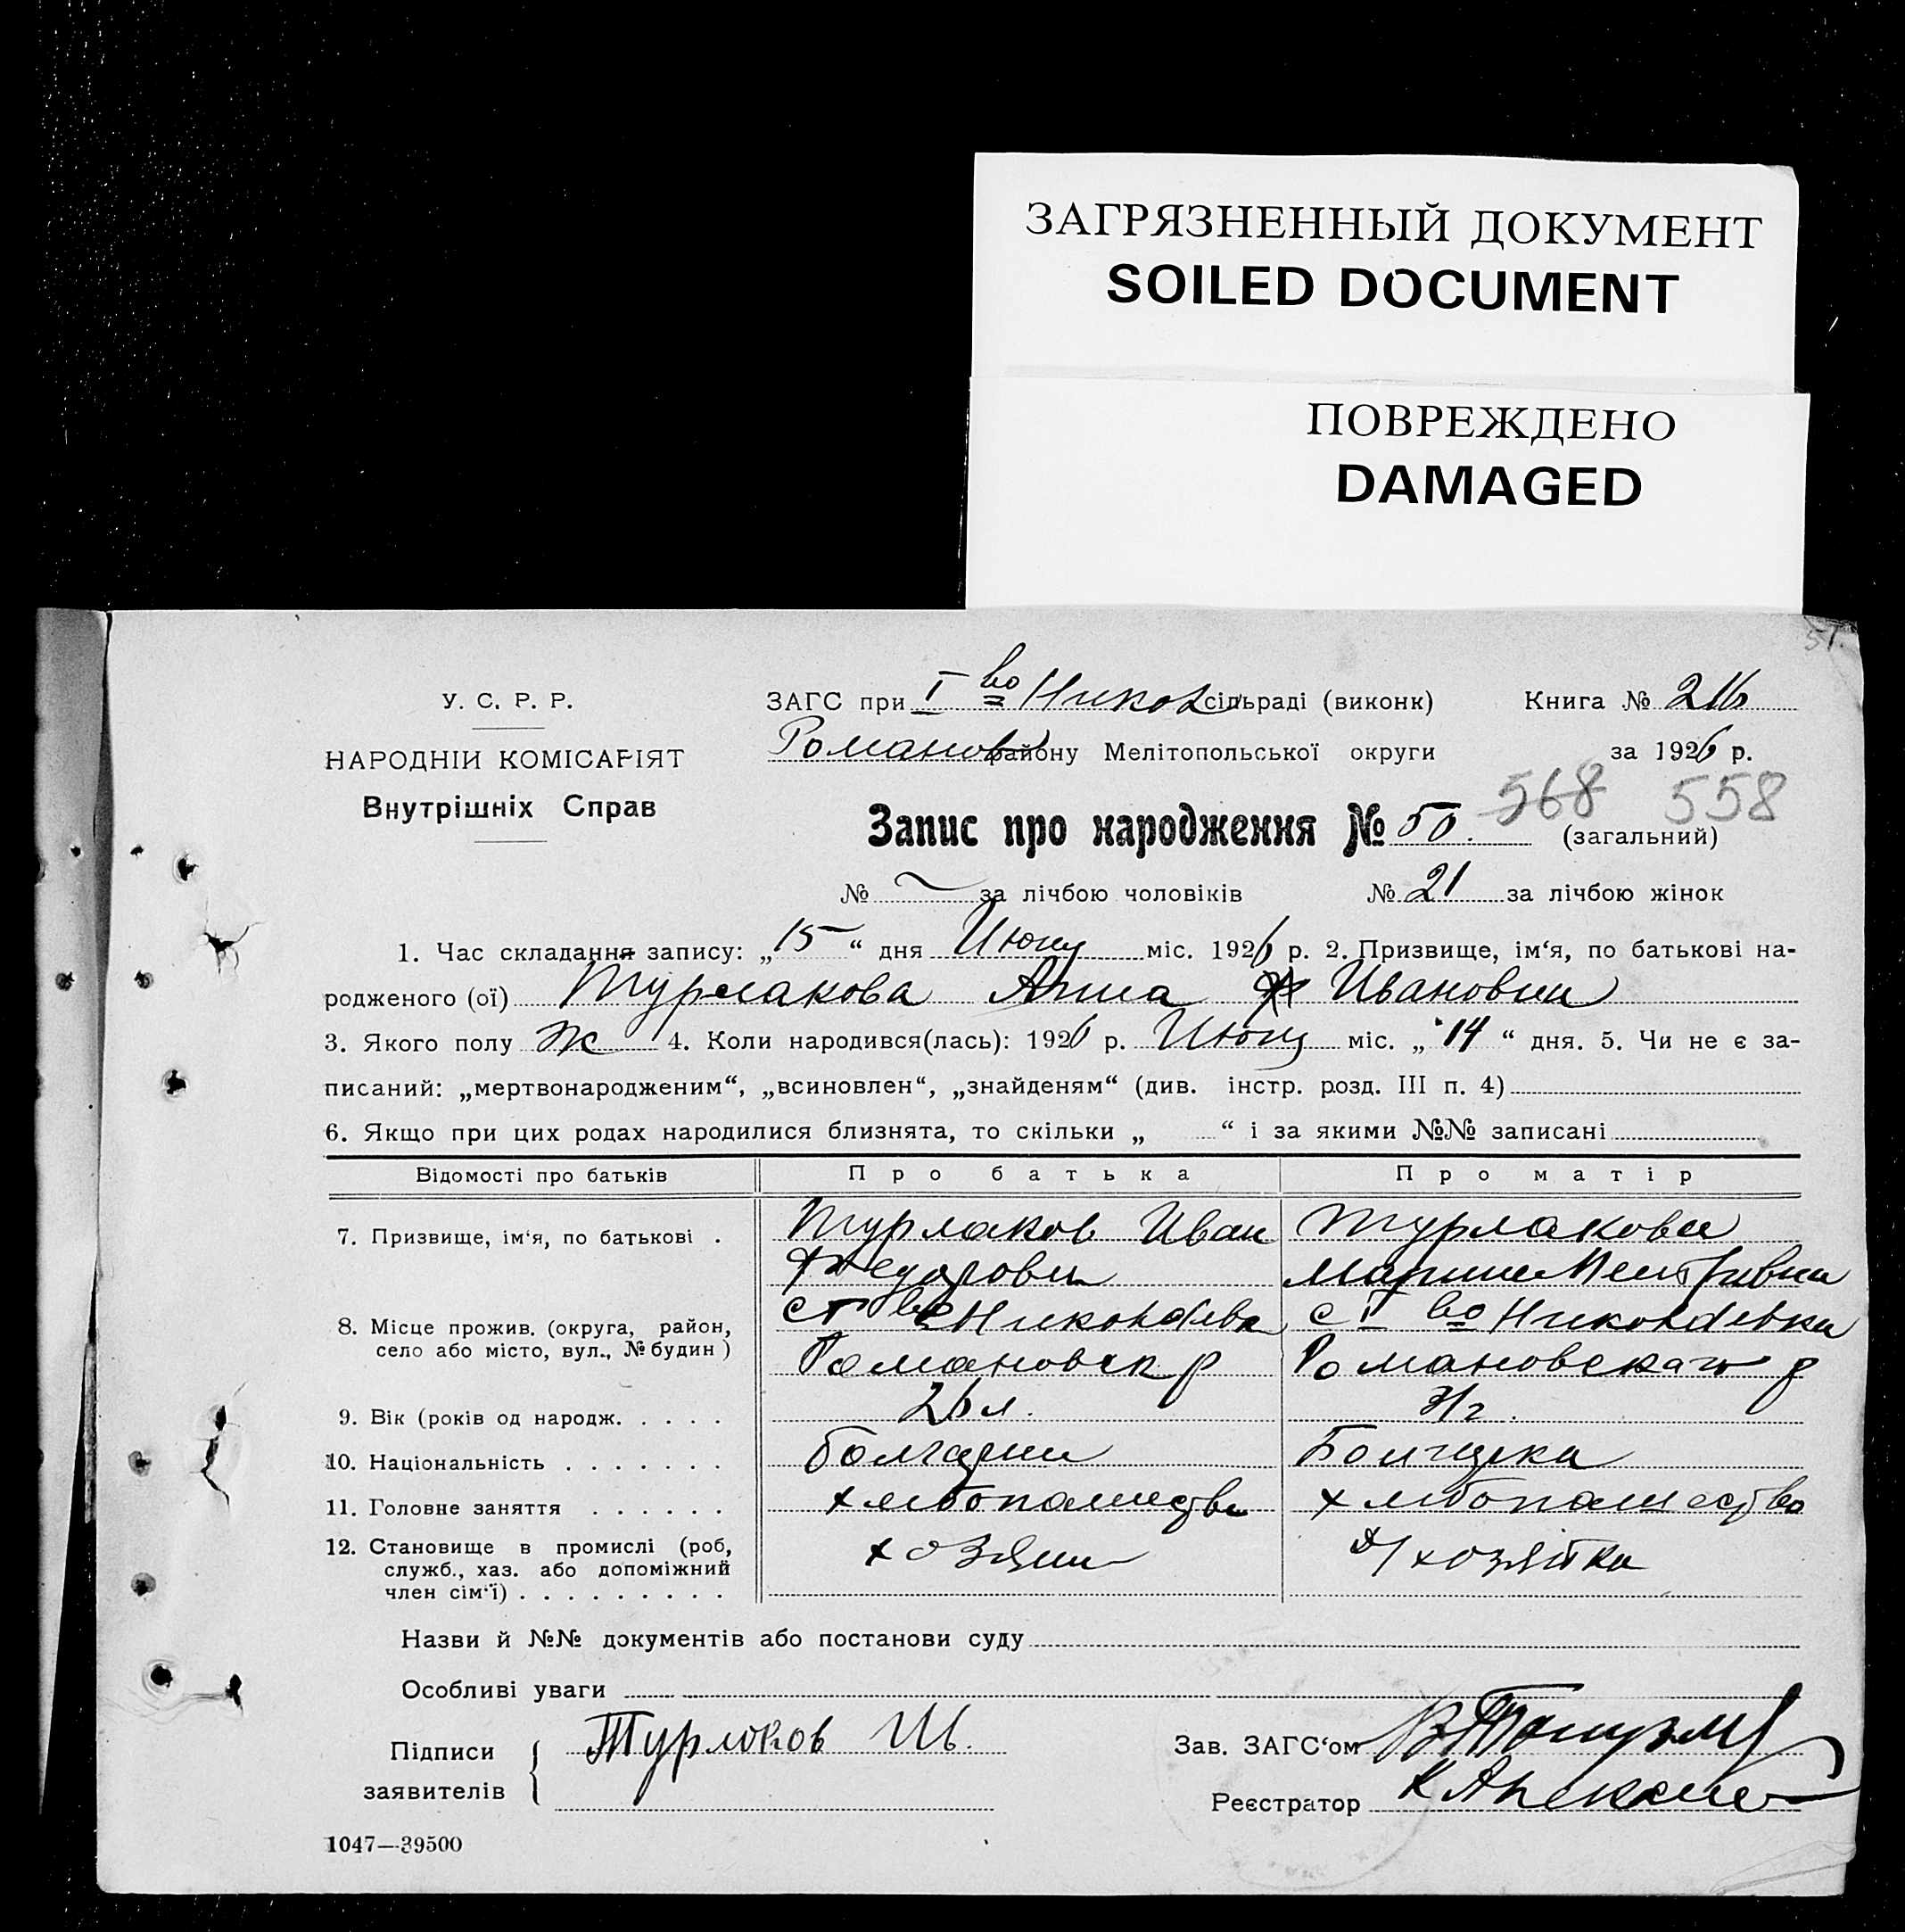 ЗАГРЯЗНЕННЫЙ ДОКУМЕНТ
SOILED DOCUMENT
ПОВРЕЖДЕНО
DAMAGED
51.
У. С. Р. Р.
НАРОДНІЙ КОМІСАРІЯТ
Внутрішніх Справ
ЗАГС при I во Никол сільраді (виконк) Книга № 216
Романов району Мелітопольської округи за 1926 р.
568 558
Запис про народження № 50. (загальний)
№ — за лічбою чоловіків № 21 за лічбою жінок
1. Час складання запису: „15“ дня Июну міс. 1926 р. 2. Призвище, ім‘я, по батькові на-
родженого (ої) Турлакова Анна Ивановна
3. Якого полу Ж 4. Коли народився(лась): 1926 р. Июну міс. „14“ дня. 5. Чи не є за-
писаний: „мертвонародженим“, „всиновлен“, „знайденям“ (див. інстр. розд. III п. 4)
6. Якщо при цих родах народилися близнята, то скільки „ “ і за якими №№ записані
Відомості про батьків Про батька Про матір
7. Призвище, ім‘я, по батькові . Турлаков Иван Турлакова
Федорови Марина
8. Місце прожив. (округа, район, с I во Николаевка с I во Николаевка
село або місто, вул., № будин) Романовск р Романовскаго р
9. Вік (років од народж. . . . . 26 л. 31 г.
10. Національність . . . . . . . Болгарин Болгарка
11. Головне заняття . . . . . . хлебопашество хлебопашество
12. Становище в промислі (роб, хозяин д/хозяйка
служб., хаз. або допоміжний
член сім‘ї) . . . . . . . . .
Назви й №№ документів або постанови суду
Особливі уваги
Підписи Турлаков Ив. Зав. ЗАГС‘ом
заявителів Реєстратор
1047—39500